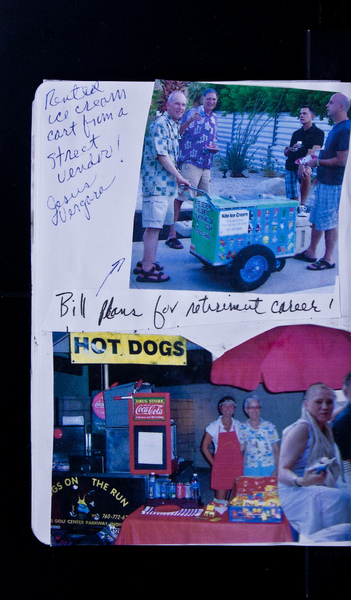 Rented
ice cream
cart from a
street
vendor!
Jesus
Vergara
Ice Cream
Bill plans for retirement career!
HOT DOGS
DRUG STORE
Coca-Cola
GS ON THE RUN
760-772-6
GOLF CENTER PARKWAY INDI